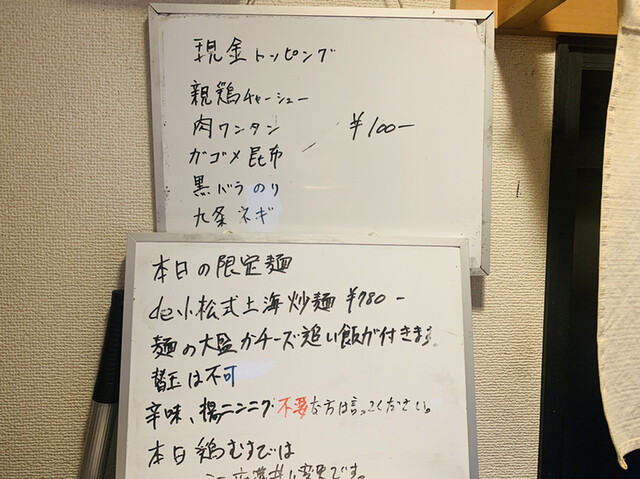 現金トッピング
親鶏チャーシュー
肉ワンタン ¥100-
ガゴメ昆布
黒バラのり
九条ネギ
本日の限定麺
de小松式上海炒麺 ¥780-
麺の大盛かチーズ追い飯が付きます。
替玉は不可
辛味、揚ニンニク不要な方は言ってください。
本日鶏むすびは
変更です。